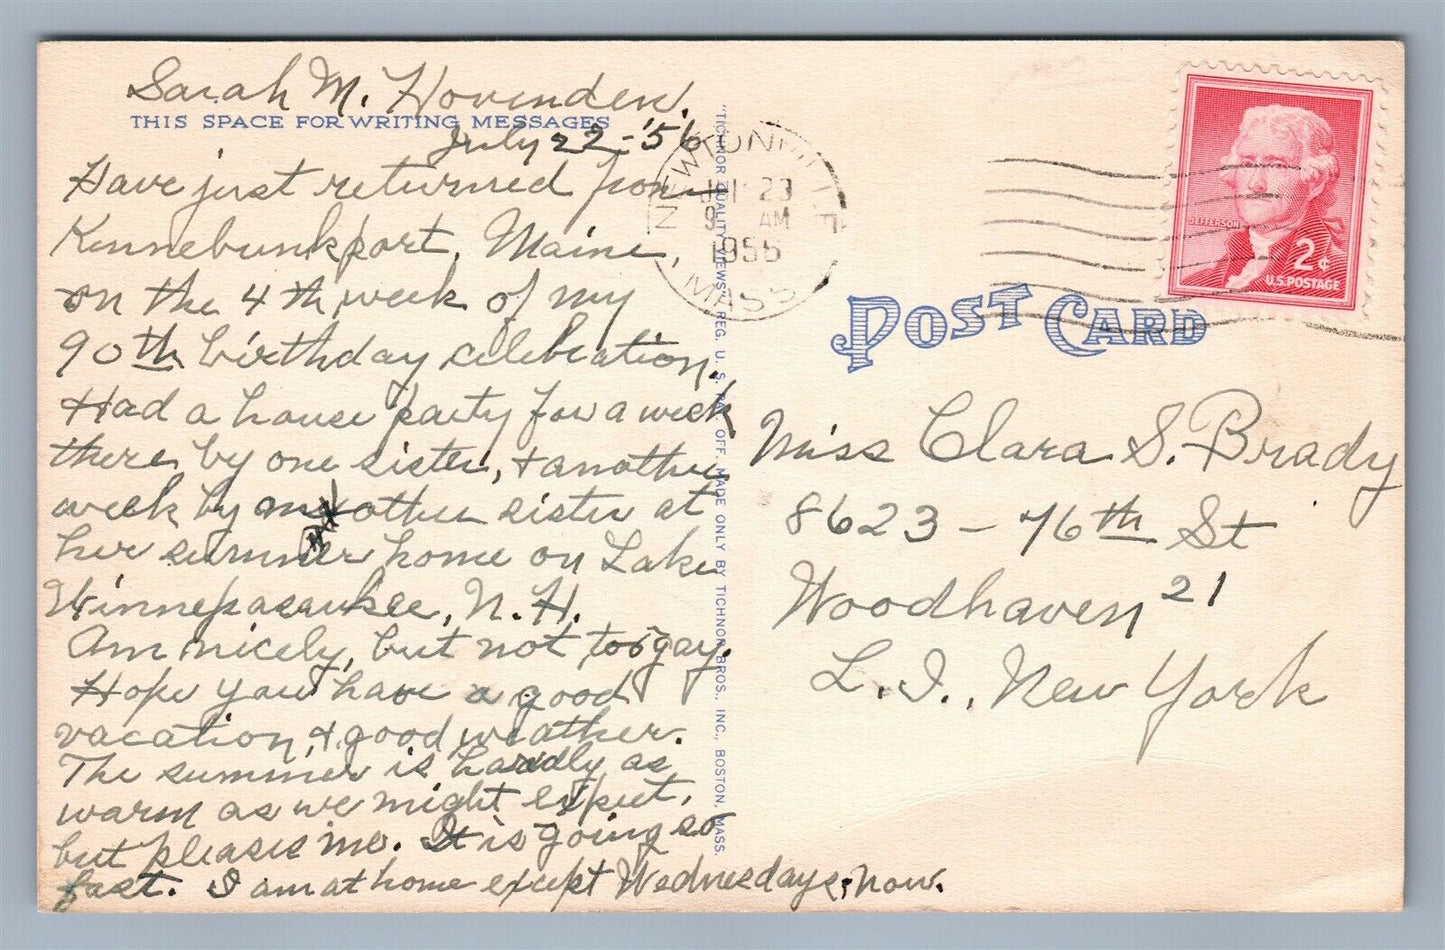 Sarah M. Hovenden.
THIS SPACE FOR WRITING MESSAGES
July 22-'56
Have just returned from
Kennebunkport, Maine,
on the 4th week of my
90th birthday celebration.
Had a house party for a week
there, by one sister, + another
week by other sister at
her summer home on Lake
Winnepasaukee, N. H.
Am nicely, but not too gay.
Hope you have a good
vacation, + good weather.
The summer is hardly as
warm as we might expect,
but pleases me. It is going so
fast. I am at home except Wednesdays, now.
"TICHNOR QUALITY VIEWS" REG. U. S. PAT. OFF. MADE ONLY BY TICHNOR BROS., INC., BOSTON, MASS.
NEWTONVILLE
JUL 23
9 AM
1956
MASS
JEFFERSON
2¢
U.S. POSTAGE
POST CARD
Miss Clara S. Brady
8623-76th St
Woodhaven 21
L. I., New York